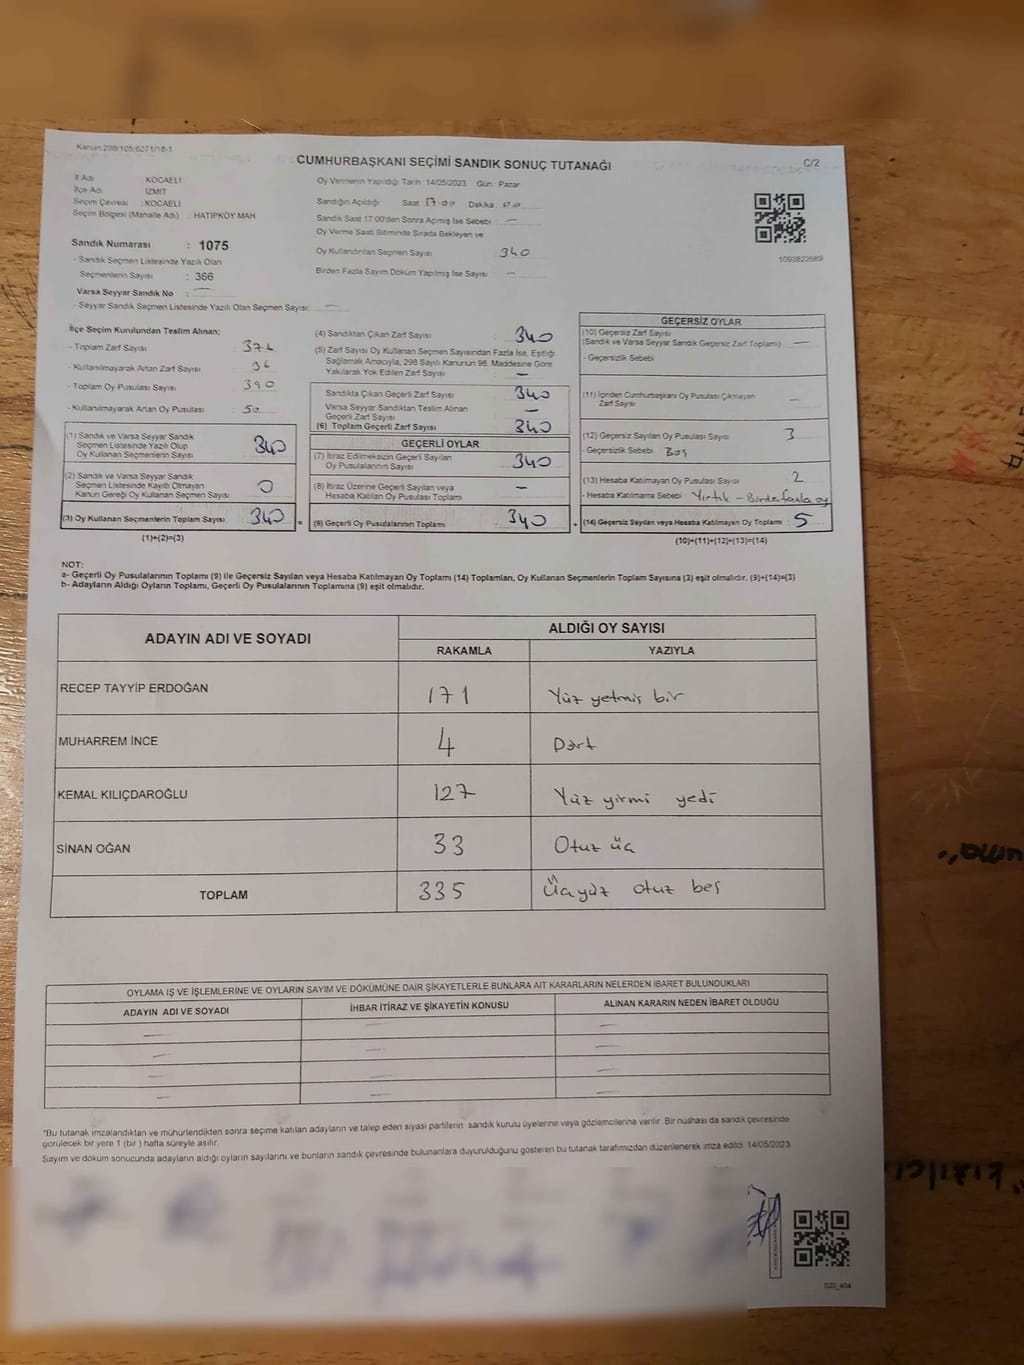 Kanun 298/105,6271/18-1
CUMHURBAŞKANI SEÇİMİ SANDIK SONUÇ TUTANAĞI
C/2
İl Adı KOCAELİ
İlçe Adı İZMİT
Seçim Çevresi : KOCAELİ
Seçim Bölgesi (Mahalle Adı) : HATIPKÖY MAH.
Sandık Numarası : 1075
- Sandık Seçmen Listesinde Yazılı Olan
Seçmenlerin Sayısı : 366
Varsa Seyyar Sandık No : —
- Seyyar Sandık Seçmen Listesinde Yazılı Olan Seçmen Sayısı: —
Oy Vermenin Yapıldığı Tarih : 14/05/2023 Gün : Pazar
Sandığın Açıldığı Saat 17:00 Dakika : 00
Sandık Saat 17:00'den Sonra Açılmış İse Sebebi : —
Oy Verme Saati Bitiminde Sırada Bekleyen ve
Oy Kullandırılan Seçmen Sayısı : 340
Birden Fazla Sayım Döküm Yapılmış İse Sayısı : —
1093822689
İlçe Seçim Kurulundan Teslim Alınan:
- Toplam Zarf Sayısı
- Kullanılmayarak Artan Zarf Sayısı
- Toplam Oy Pusulası Sayısı 390
- Kullanılmayarak Artan Oy Pusulası : 50
(1) Sandık ve Varsa Seyyar Sandık
Seçmen Listesinde Yazılı Olup
Oy Kullanan Seçmenlerin Sayısı 340
(2) Sandık ve Varsa Seyyar Sandık
Seçmen Listesinde Kayıtlı Olmayan
Kanun Gereği Oy Kullanan Seçmen Sayısı 0
(3) Oy Kullanan Seçmenlerin Toplam Sayısı 340 =
(1)+(2)=(3)
(4) Sandıktan Çıkan Zarf Sayısı : 340
(5) Zarf Sayısı Oy Kullanan Seçmen Sayısından Fazla İse, Eşitliği
Sağlamak Amacıyla, 298 Sayılı Kanunun 98. Maddesine Göre
Yakılarak Yok Edilen Zarf Sayısı : —
Sandıkta Çıkan Geçerli Zarf Sayısı : 340
Varsa Seyyar Sandıktan Teslim Alınan
Geçerli Zarf Sayısı : —
(6) Toplam Geçerli Zarf Sayısı : 340
GEÇERLİ OYLAR
(7) İtiraz Edilmeksizin Geçerli Sayılan
Oy Pusulalarının Sayısı : 340
(8) İtiraz Üzerine Geçerli Sayılan veya
Hesaba Katılan Oy Pusulası Toplamı : —
(9) Geçerli Oy Pusulalarının Toplamı : 340 +
GEÇERSİZ OYLAR
(10) Geçersiz Zarf Sayısı
(Sandık ve Varsa Seyyar Sandık Geçersiz Zarf Toplamı) : —
- Geçersizlik Sebebi :
(11) İçinden Cumhurbaşkanı Oy Pusulası Çıkmayan
Zarf Sayısı : —
(12) Geçersiz Sayılan Oy Pusulası Sayısı : 3
- Geçersizlik Sebebi : Boş
(13) Hesaba Katılmayan Oy Pusulası Sayısı : 2
- Hesaba Katılmama Sebebi : Yırtık - Birden fazla oy
(14) Geçersiz Sayılan veya Hesaba Katılmayan Oy Toplamı : 5
(10)+(11)+(12)+(13)=(14)
NOT:
a- Geçerli Oy Pusulalarının Toplamı (9) ile Geçersiz Sayılan veya Hesaba Katılmayan Oy Toplamı (14) Toplamları, Oy Kullanan Seçmenlerin Toplam Sayısına (3) eşit olmalıdır. (9)+(14)=(3)
b- Adayların Aldığı Oyların Toplamı, Geçerli Oy Pusulalarının Toplamına (9) eşit olmalıdır.
ADAYIN ADI VE SOYADI
ALDIĞI OY SAYISI
RAKAMLA YAZIYLA
RECEP TAYYİP ERDOĞAN 171 Yüz yetmiş bir
MUHARREM İNCE 4 Dört
KEMAL KILIÇDAROĞLU 127 Yüz yirmi yedi
SİNAN OĞAN 33 Otuz üç
TOPLAM 335 Üçyüz otuz beş
OYLAMA İŞ VE İŞLEMLERİNE VE OYLARIN SAYIM VE DÖKÜMÜNE DAİR ŞİKAYETLERLE BUNLARA AİT KARARLARIN NELERDEN İBARET BULUNDUKLARI
ADAYIN ADI VE SOYADI İHBAR İTİRAZ VE ŞİKAYETİN KONUSU ALINAN KARARIN NEDEN İBARET OLDUĞU
— — —
— — —
— — —
— — —
*Bu tutanak imzalandıktan ve mühürlendikten sonra seçime katılan adayların ve talep eden siyasi partilerin sandık kurulu üyelerine veya gözlemcilerine verilir. Bir nüshası da sandık çevresinde
görülecek bir yere 1 (bir ) hafta süreyle asılır.
Sayım ve döküm sonucunda adayların aldığı oyların sayılarını ve bunların sandık çevresinde bulunanlara duyurulduğunu gösteren bu tutanak tarafımızdan düzenlenerek imza edildi. 14/05/2023